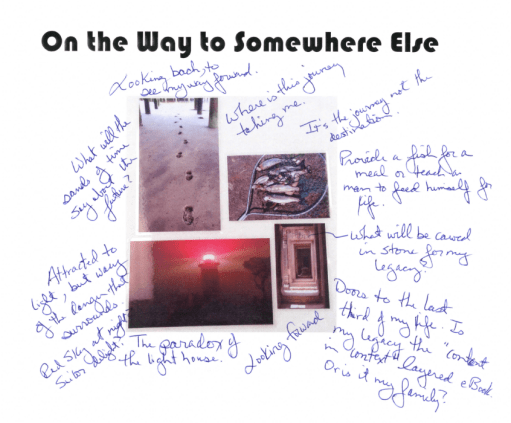 On the Way to Somewhere Else
Looking back, to
see my way forward.
Where is this journey
taking me.
It's the journey not the
destination.
What will the
sands of time
say about the
future?
Provide a fish for a
meal or teach a
man to feed himself for
life.
What will be carved
in stone for my
legacy?
Attracted to
light, but wary
of the danger that
surrounds.
Red Sky at night
Sailor delight.
The paradox of
the light house.
Looking forward
Doors to the last
third of my life. Is
my legacy the "content
in context" layered eBook.
Or is it my family?